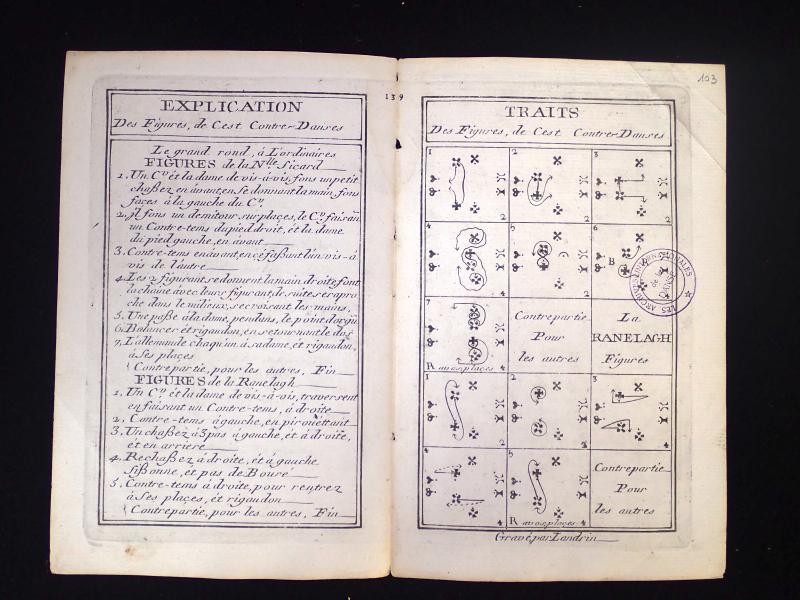 EXPLICATION
Des Figures, de Cest Contre-Danses
Le grand rond, à L'ordinaires
FIGURES de la Nlle Sicard
1. Un Cer et la dame de vis-à-vis, fons un petit
chaßez en avant, en Se donnant la main, fons
faces à la gauche du Cer
2, Jl fons un demitour Sur places, le Cer faisan
un Contre-tems du pied droit, et la dame
du pied gauche, en avant
3. Contre-tems en avant, en çe faßant l'un vis-à
vis de l'autre
4. Les 2 figurans, se donnent la main droite, font
la chaine avec leurs figurant, de suite, se rapro
che dans le milieux, se croisant les mains,
5. Une paße à la dame, pendans, le point d'orgue
6. Balancer et rigaudon, en retournant le dos
7. L'allemande chaqu'un à sa dame, et rigaudon,
à Ses places
Contrepartie, pour les autres, Fin
FIGURES de la Ranelagh
1. Un Cer et la dame de vis-à-vis, traversent
en faisant un Contre-tems, à droite
2. Contre-tems à gauche, en pirouettant
3. Un chaßez à 3 pas à gauche, et à droite,
et en arriere
4. Rechaßez à droite, et à gauche
Sißonne, et pas de Boure
5. Contre-tems à droite, pour rentrez
à Ses places, et rigaudon
Contrepartie, pour les autres, Fin
139
103
TRAITS
Des Figures, de Cest Contre-Danses
1
2
2
2
3
2
4
4
5
2
6
B
7
R a vos places
4
Contrepartie
Pour
les autres
La
RANELAGH
Figures
1
4
2
4
3
4
4
4
5
R a vos places
4
Contrepartie
Pour
les autres
Gravé par Landrin